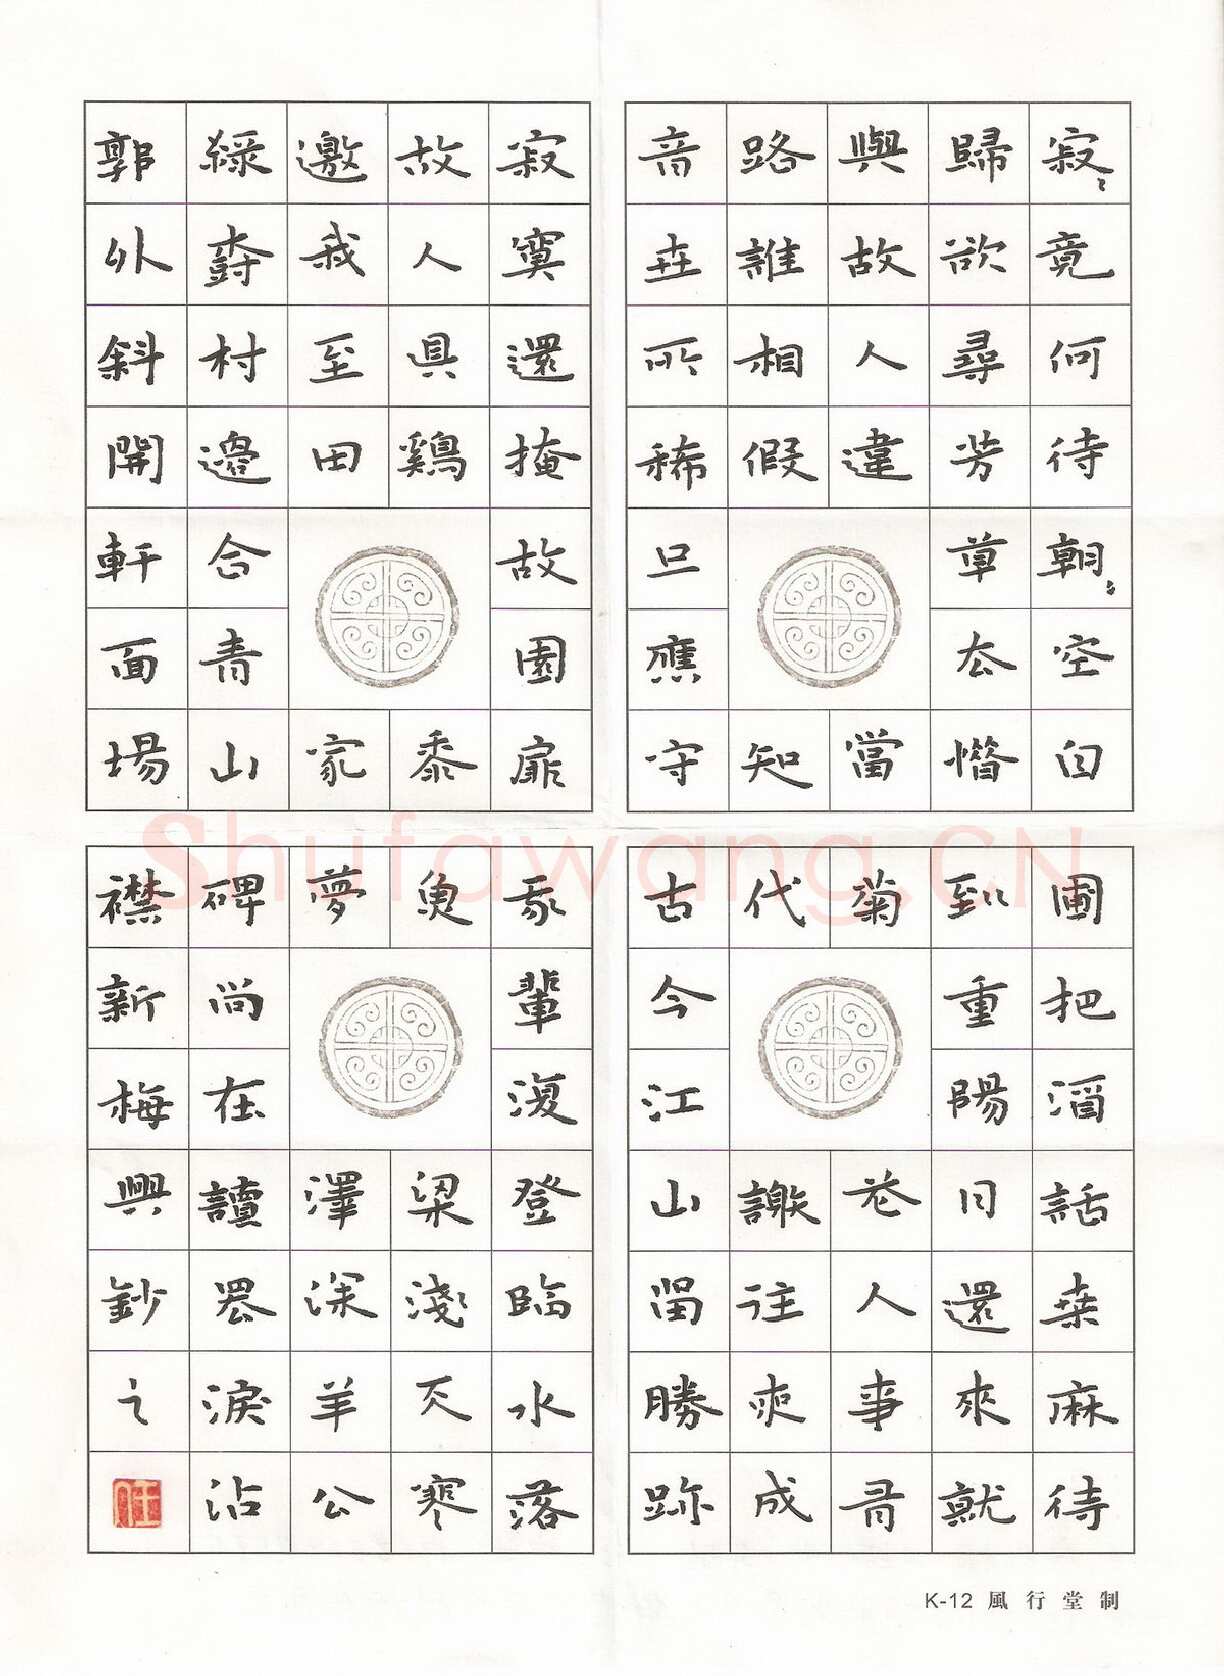 寂〻竟何待朝〻空自
歸欲尋芳草去惜
與故人違當
路誰相假知
音世所稀只應守
寂寞還掩故園扉
故人具鷄黍
邀我至田家
綠樹村邊合青山
郭外斜開軒面場
圃把酒話桑麻待
到重陽日還來就
菊花人事有
代謝往來成
古今江山留勝跡
我輩復登臨水落
魚梁淺天寒
夢澤深羊公
碑尚在讀罷淚沾
襟新梅興鈔之
任
Shufawang.CN
K-12 風行堂制